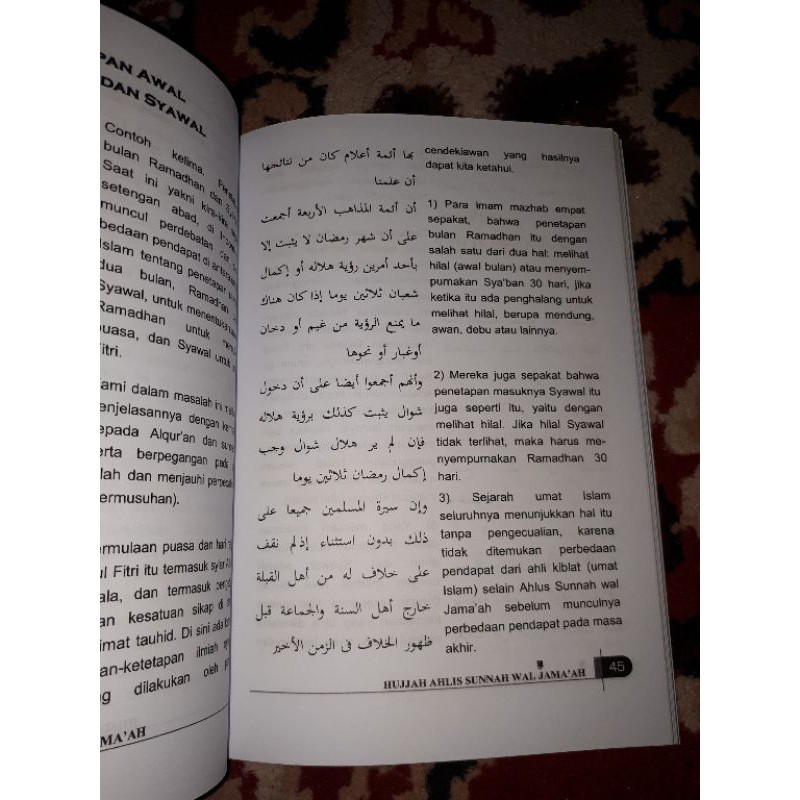 PAN AWAL
DAN SYAWAL
Contoh kelima.
bulan Ramadhan dan
Saat ini yakni kira-kira
setengan abad, di
muncul perdebatan dan
bedaan pendapat di
Islam tentang penetapan
dua bulan, Ramadhan
Syawal, untuk
Ramadhan untuk
puasa, dan Syawal untuk
Fitri.
ami dalam masalah ini
enjelasannya dengan
epada Alqur'an dan
erta berpegangan pada
lah dan menjauhi
ermusuhan).
ermulaan puasa dan hari
ul Fitri itu termasuk
ala, dan termasuk
an kesatuan sikap di
imat tauhid. Di sini ada
an-ketetapan ilmiah
ng dilakukan oleh
MA'AH
بها أئمة أعلام كان من نتائجها
أن علمنا
أن أئمة المذاهب الأربعة أجمعت
على أن شهر رمضان لا يثبت إلا
بأحد أمرين رؤية هلاله أو إكمال
شعبان ثلاثين يوما إذا كان هناك
ما يمنع الرؤية من غيم أو دخان
أوغبار أو نحوها
وأنهم أجمعوا أيضا على أن دخول
شوال يثبت كذلك برؤية هلاله
فإن لم ير هلال شوال وجب
إكمال رمضان ثلاثين يوما
وإن سيرة المسلمين جميعا على
ذلك بدون استثناء إذلم نقف
على خلاف له من أهل القبلة
خارج أهل السنة والجماعة قبل
ظهور الخلاف فى الزمن الأخير
cendekiawan yang hasilnya
dapat kita ketahui.
1) Para imam mazhab empat
sepakat, bahwa penetapan
bulan Ramadhan itu dengan
salah satu dari dua hal: melihat
hilal (awal bulan) atau menyem-
purnakan Sya'ban 30 hari, jika
ketika itu ada penghalang untuk
melihat hilal, berupa mendung,
awan, debu atau lainnya.
2) Mereka juga sepakat bahwa
penetapan masuknya Syawal itu
juga seperti itu, yaitu dengan
melihat hilal. Jika hilal Syawal
tidak terlihat, maka harus me-
nyempurnakan Ramadhan 30
hari.
3) Sejarah umat Islam
seluruhnya menunjukkan hal itu
tanpa pengecualian, karena
tidak ditemukan perbedaan
pendapat dari ahli kiblat (umat
Islam) selain Ahlus Sunnah wal
Jama'ah sebelum munculnya
perbedaan pendapat pada masa
akhir.
HUJJAH AHLIS SUNNAH WAL JAMA'AH 45